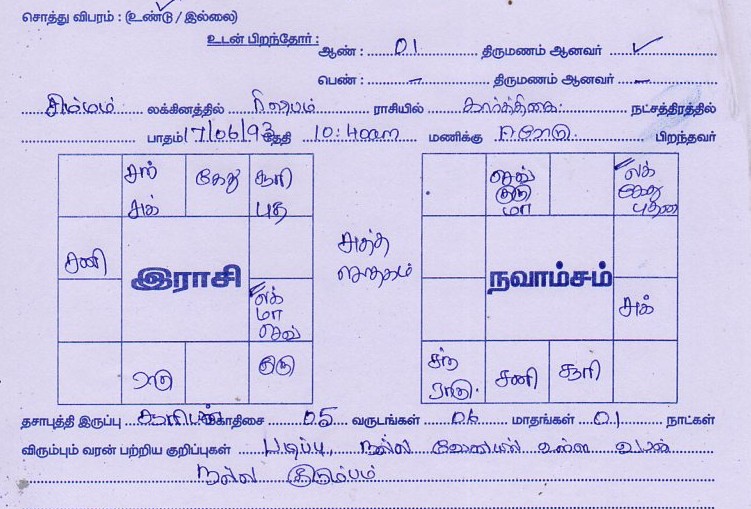 சொத்து விபரம் : (உண்டு / இல்லை)
உடன் பிறந்தோர் :
ஆண் : 01 திருமணம் ஆனவர் ✓
பெண் : – திருமணம் ஆனவர் –
சிம்மம் லக்கினத்தில் ரிஷபம் ராசியில் கார்த்திகை நட்சத்திரத்தில்
பாதம் 17/06/93 தேதி 10:40am மணிக்கு ஈரோடு பிறந்தவர்
சந் கேது சூரி
சுக் புத
சனி
இராசி
லக்
மா
செவ்
ராகு குரு
சுத்த
ஜாதகம்
செவ் லக்
குரு கேது
மா புதன்
நவாம்சம்
சுக்
சந் சனி சூரி
ராகு
தசாபுத்தி இருப்பு சூரியன் மகாதிசை 05 வருடங்கள் 06 மாதங்கள் 01 நாட்கள்
விரும்பும் வரன் பற்றிய குறிப்புகள் படிப்பு, நல்ல வேலையில் உள்ள வரன்
நல்ல குடும்பம்